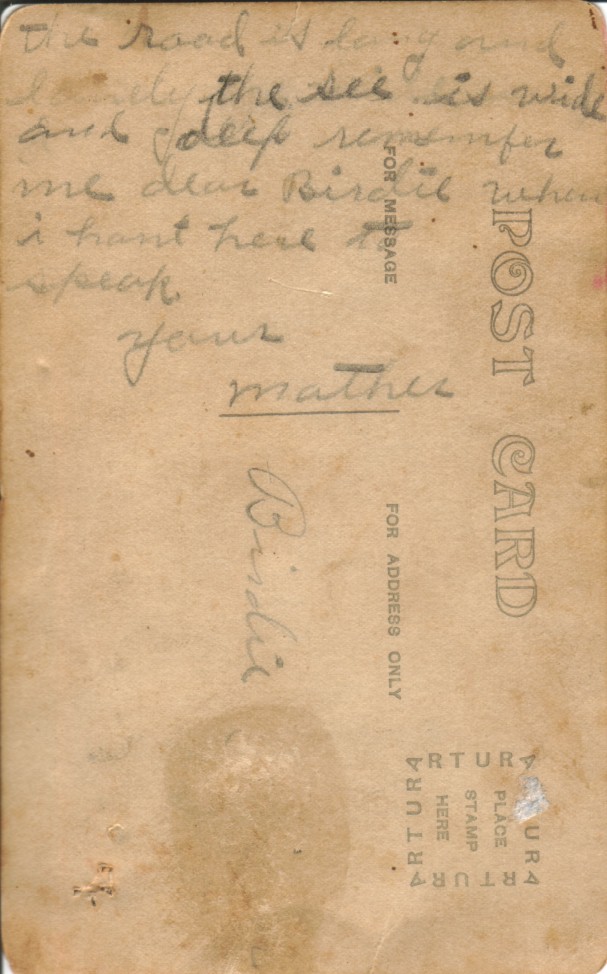 the road is long and
lonely the see is wide
and deep remember
me dear Birdie when
i hant here to
speak
your
mother
Birdie
POST CARD
FOR MESSAGE
FOR ADDRESS ONLY
ARTURA
ARTURA
ARTURA
PLACE
STAMP
HERE